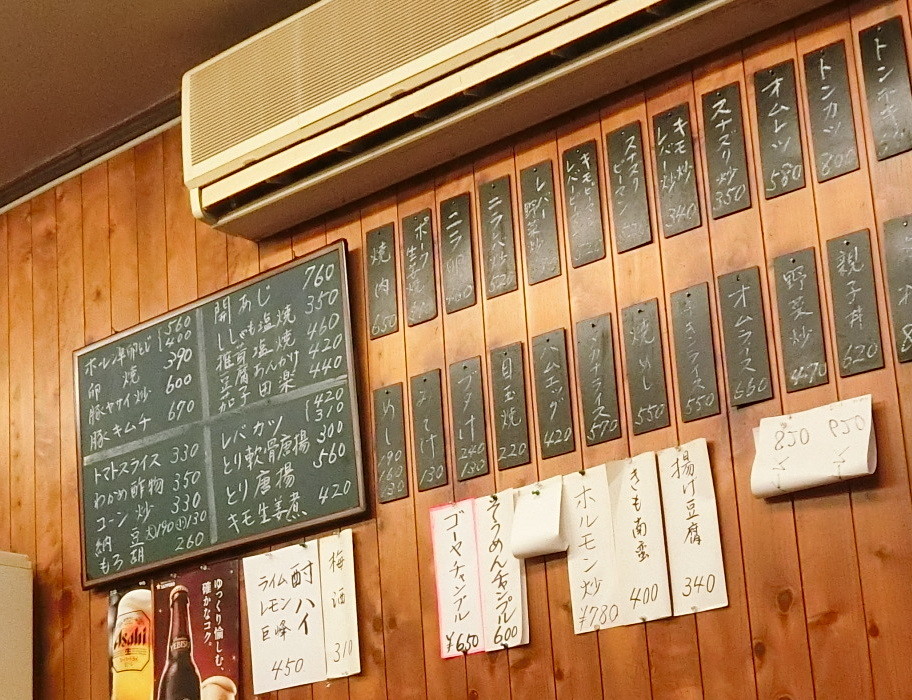 開あじ 760
ししゃも塩焼 350
椎茸塩焼 460
豆腐あんかけ 420
茄子田楽 440
560
400
卵焼 390
豚ヤサイ炒 600
豚キムチ 670
トマトスライス 330
わかめ酢物 350
コーン炒 330
納豆 大190 小130
もろ胡 260
レバカツ 420
310
とり軟骨唐揚 300
とり唐揚 560
キモ生姜煮 420
トンカツ 800
オムレツ 580
スナズリ炒 350
キモ炒
レバー炒 340
スナズリ
ピーマン
レバー
野菜炒
ニラレバ炒
ニラ卵
ポーク
生姜
焼肉 650
親子丼 620
野菜炒 470
オムライス 660
550
焼めし 550
570
ハムエッグ 420
目玉焼 220
240
220
130
めし 190
160
130
850
950
揚げ豆腐 340
きも南蛮 400
ホルモン炒 ¥780
そうめんチャンプル 600
ゴーヤチャンプル ¥650
梅酒 310
酎ハイ
ライム
レモン
巨峰
450
ゆっくり愉しむ、
確かなコク。
Asahi
生
YEBISU